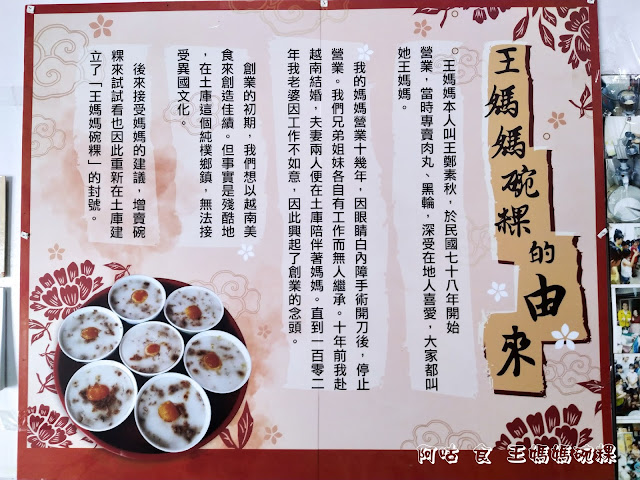 王媽媽碗粿的由來
王媽媽本人叫王鄭素秋，於民國七十八年開始
營業，當時專賣肉丸、黑輪，深受在地人喜愛，大家都叫
她王媽媽。
我的媽媽營業十幾年，因眼睛白內障手術開刀後，停止
營業。我們兄弟姐妹各自有工作而無人繼承。十年前我赴
越南結婚，夫妻兩人便在土庫陪伴著媽媽。直到一百零二
年我老婆因工作不如意，因此興起了創業的念頭。
創業的初期，我們想以越南美
食來創造佳績。但事實是殘酷地
，在土庫這個純樸鄉鎮，無法接
受異國文化。
後來接受媽媽的建議，增賣碗
粿來試試看也因此重新在土庫建
立了「王媽媽碗粿」的封號。
阿咕 食 王媽媽碗粿